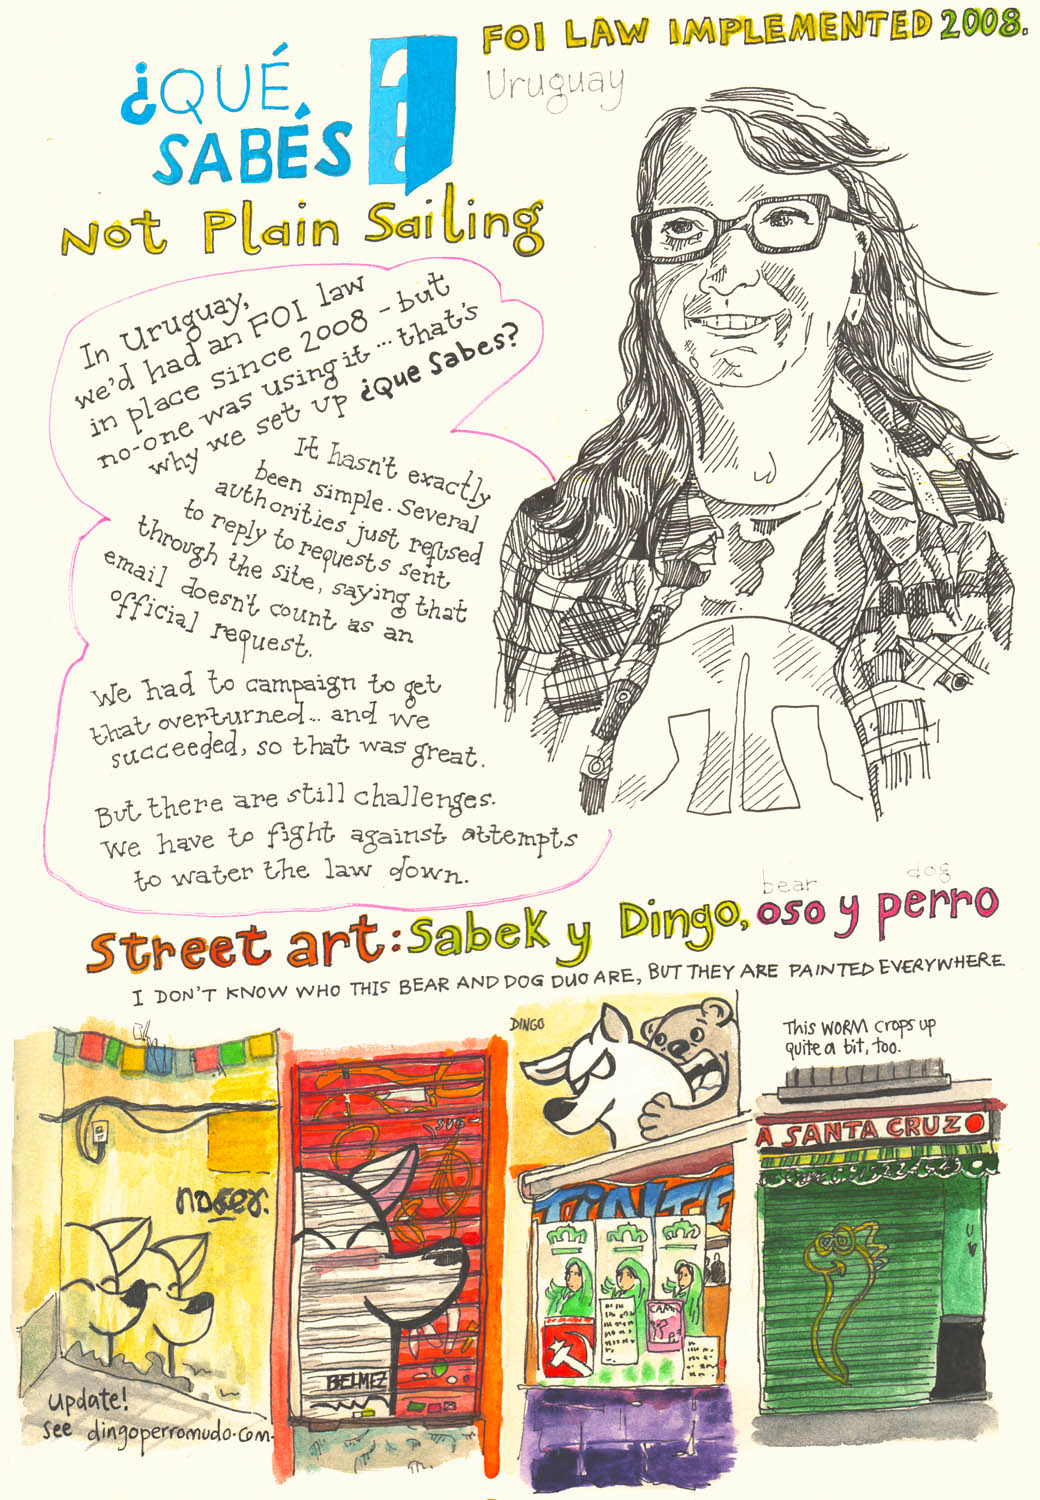 FOI LAW IMPLEMENTED 2008.
Uruguay
¿QUÉ
SABÉS
Not Plain Sailing
In Uruguay,
we'd had an FOI law
in place since 2008 - but
no-one was using it ... that's
why we set up ¿Que Sabes?
It hasn't exactly
been simple. Several
authorities just refused
to reply to requests sent
through the site, saying that
email doesn't count as an
official request.
We had to campaign to get
that overturned... and we
succeeded, so that was great.
But there are still challenges.
We have to fight against attempts
to water the law down.
bear
dog
Street art: Sabek y Dingo, oso y perro
I DON'T KNOW WHO THIS BEAR AND DOG DUO ARE, BUT THEY ARE PAINTED EVERYWHERE.
DINGO
This WORM crops up
quite a bit, too.
A SANTA CRUZ
TINTE
BELMEZ
update!
see dingoperromudo.com.